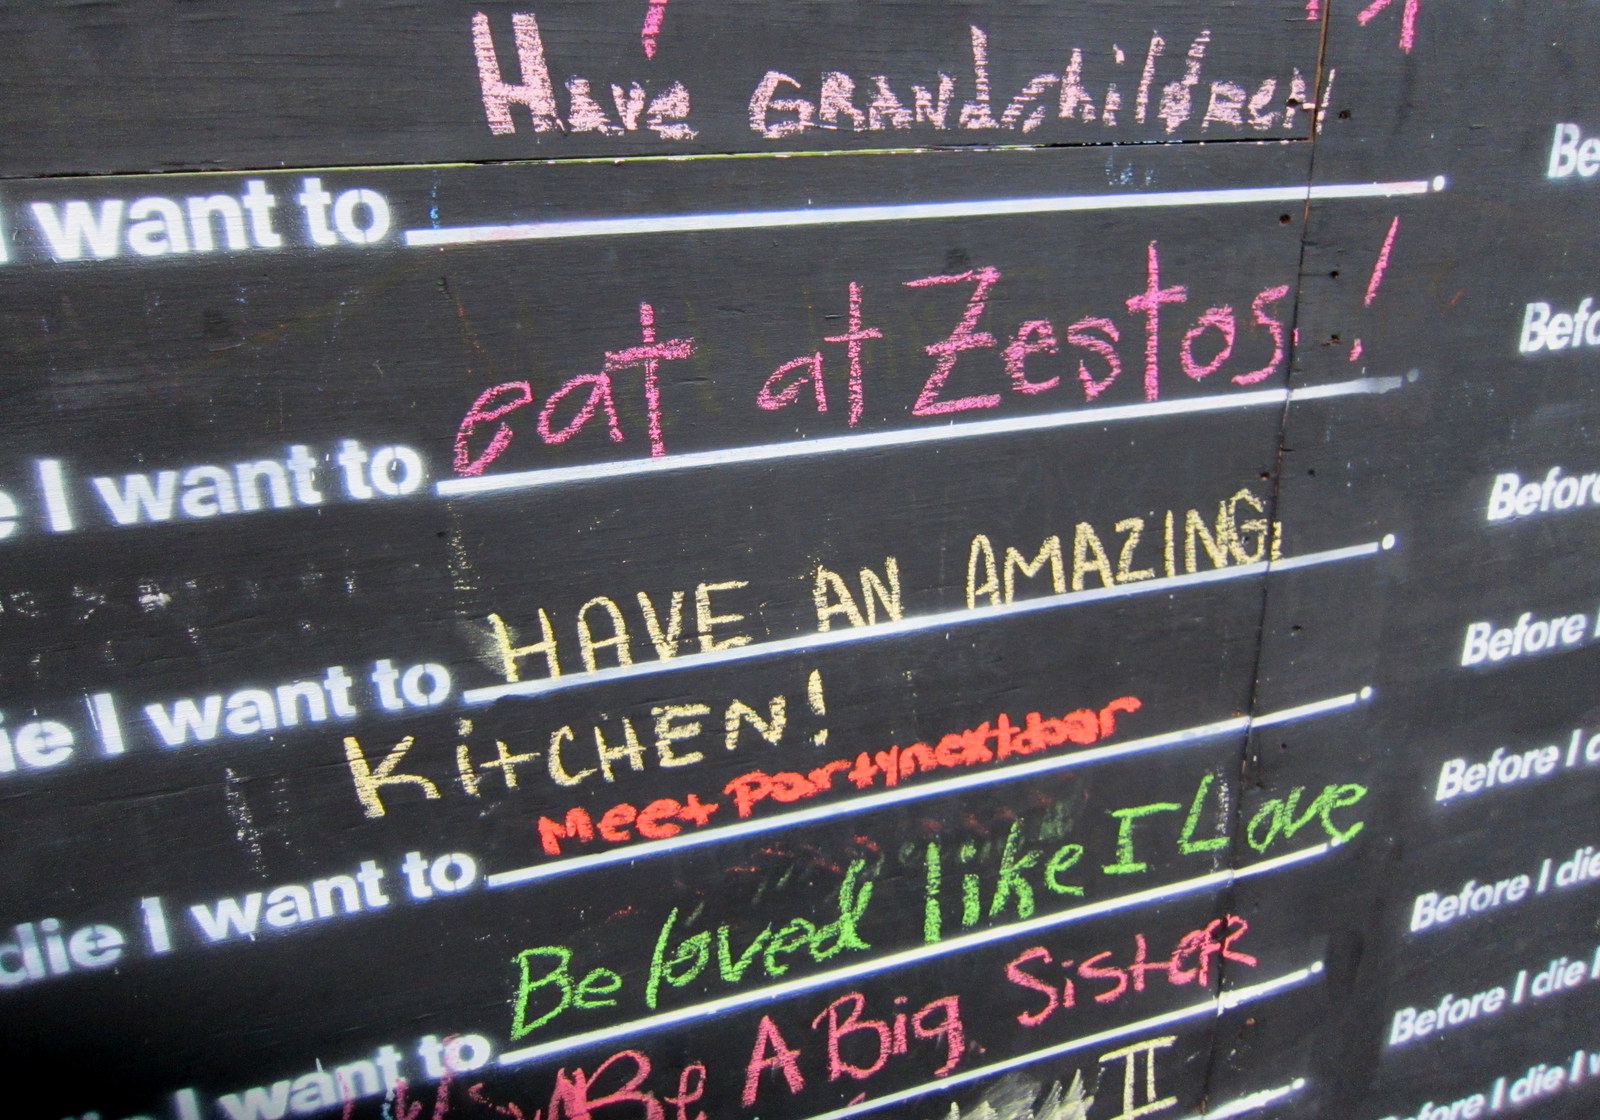 Have GRANdchildren
I want to Be
eat at Zestos! Befo
e I want to
HAVE AN AMAZING Before
ie I want to
KitCHEN! Before I
Meet Partynextdoor
die I want to Before I d
Be loved like I Love Before I die
die I want to
Be A Big Sister Before I die I
II
Before I die I w